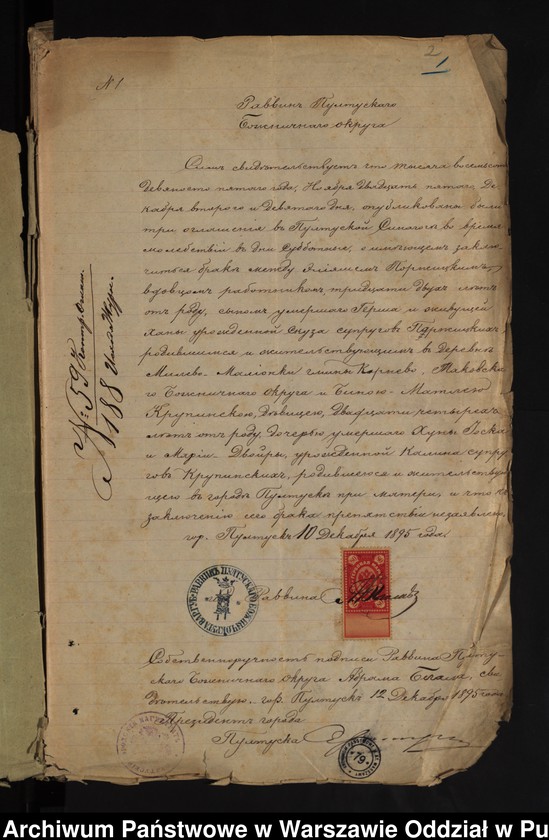 N 1
2
1
Раввинъ Пултускаго
Божничнаго округа
Симъ свидѣтельствуетъ что тысяча восемьсотъ
девяносто пятаго года, Ноября двадцать пятаго, Де-
кабря втораго и девятаго дня, опубликованы были
три оглашенія въ Пултуской Синагогѣ во время
молебствій въ дни субботніе, о имѣющемъ заклю-
читься бракѣ между
вдовцомъ работникомъ, тридцати двухъ лѣтъ
отъ роду, сыномъ умершаго Герша и живущей
Ханы урожденной супруговъ
родившимся и жительствующимъ въ деревнѣ
Милево-Малiонки гмины Карнево, Маковска-
го Божничнаго Округа и Биною-Матлею
Крупинскою, дѣвицею, двадцати четырехъ
лѣтъ отъ роду, дочерью умершаго
и Маріи Двойры, урожденной Калина супру-
говъ Крупинскихъ, родившеюся и жительствую-
щею въ городѣ Пултускѣ при матери, и что къ
заключенію сего брака препятствія незаявлено
гор. Пултускъ 10 Декабря 1895 года.
Раввинъ
Собственноручность подписи Раввина Пулту-
скаго Божничнаго Округа Абрама сви-
дѣтельствую. гор. Пултускъ 12 Декабря 1895 года
Президентъ города
Пултуска
№ 59
188
79
Archiwum Państwowe w Warszawie Oddział w Pu